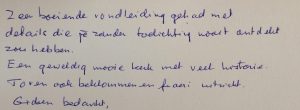 Zeer boeiende rondleiding gehad met
details die je zonder toelichting nooit ontdekt
zou hebben.
Een geweldig mooie kerk met veel historie.
Toren ook beklommen en fraai uitzicht.
Gidsen bedankt,